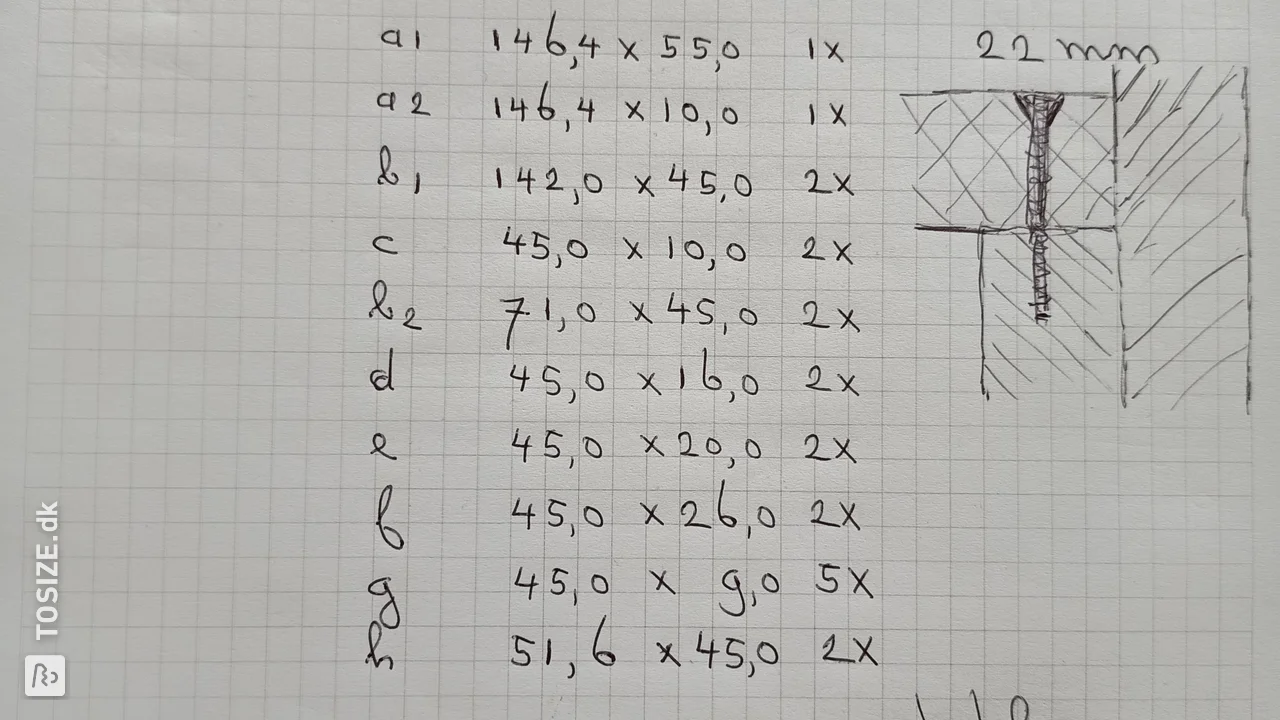 a1 146,4 x 55,0 1x
22 mm
a2 146,4 x 10,0 1x
b1 142,0 x 45,0 2x
c 45,0 x 10,0 2x
b2 71,0 x 45,0 2x
d 45,0 x 16,0 2x
e 45,0 x 20,0 2x
f 45,0 x 26,0 2x
g 45,0 x 9,0 5x
h 51,6 x 45,0 2x
TOSIZE.dk